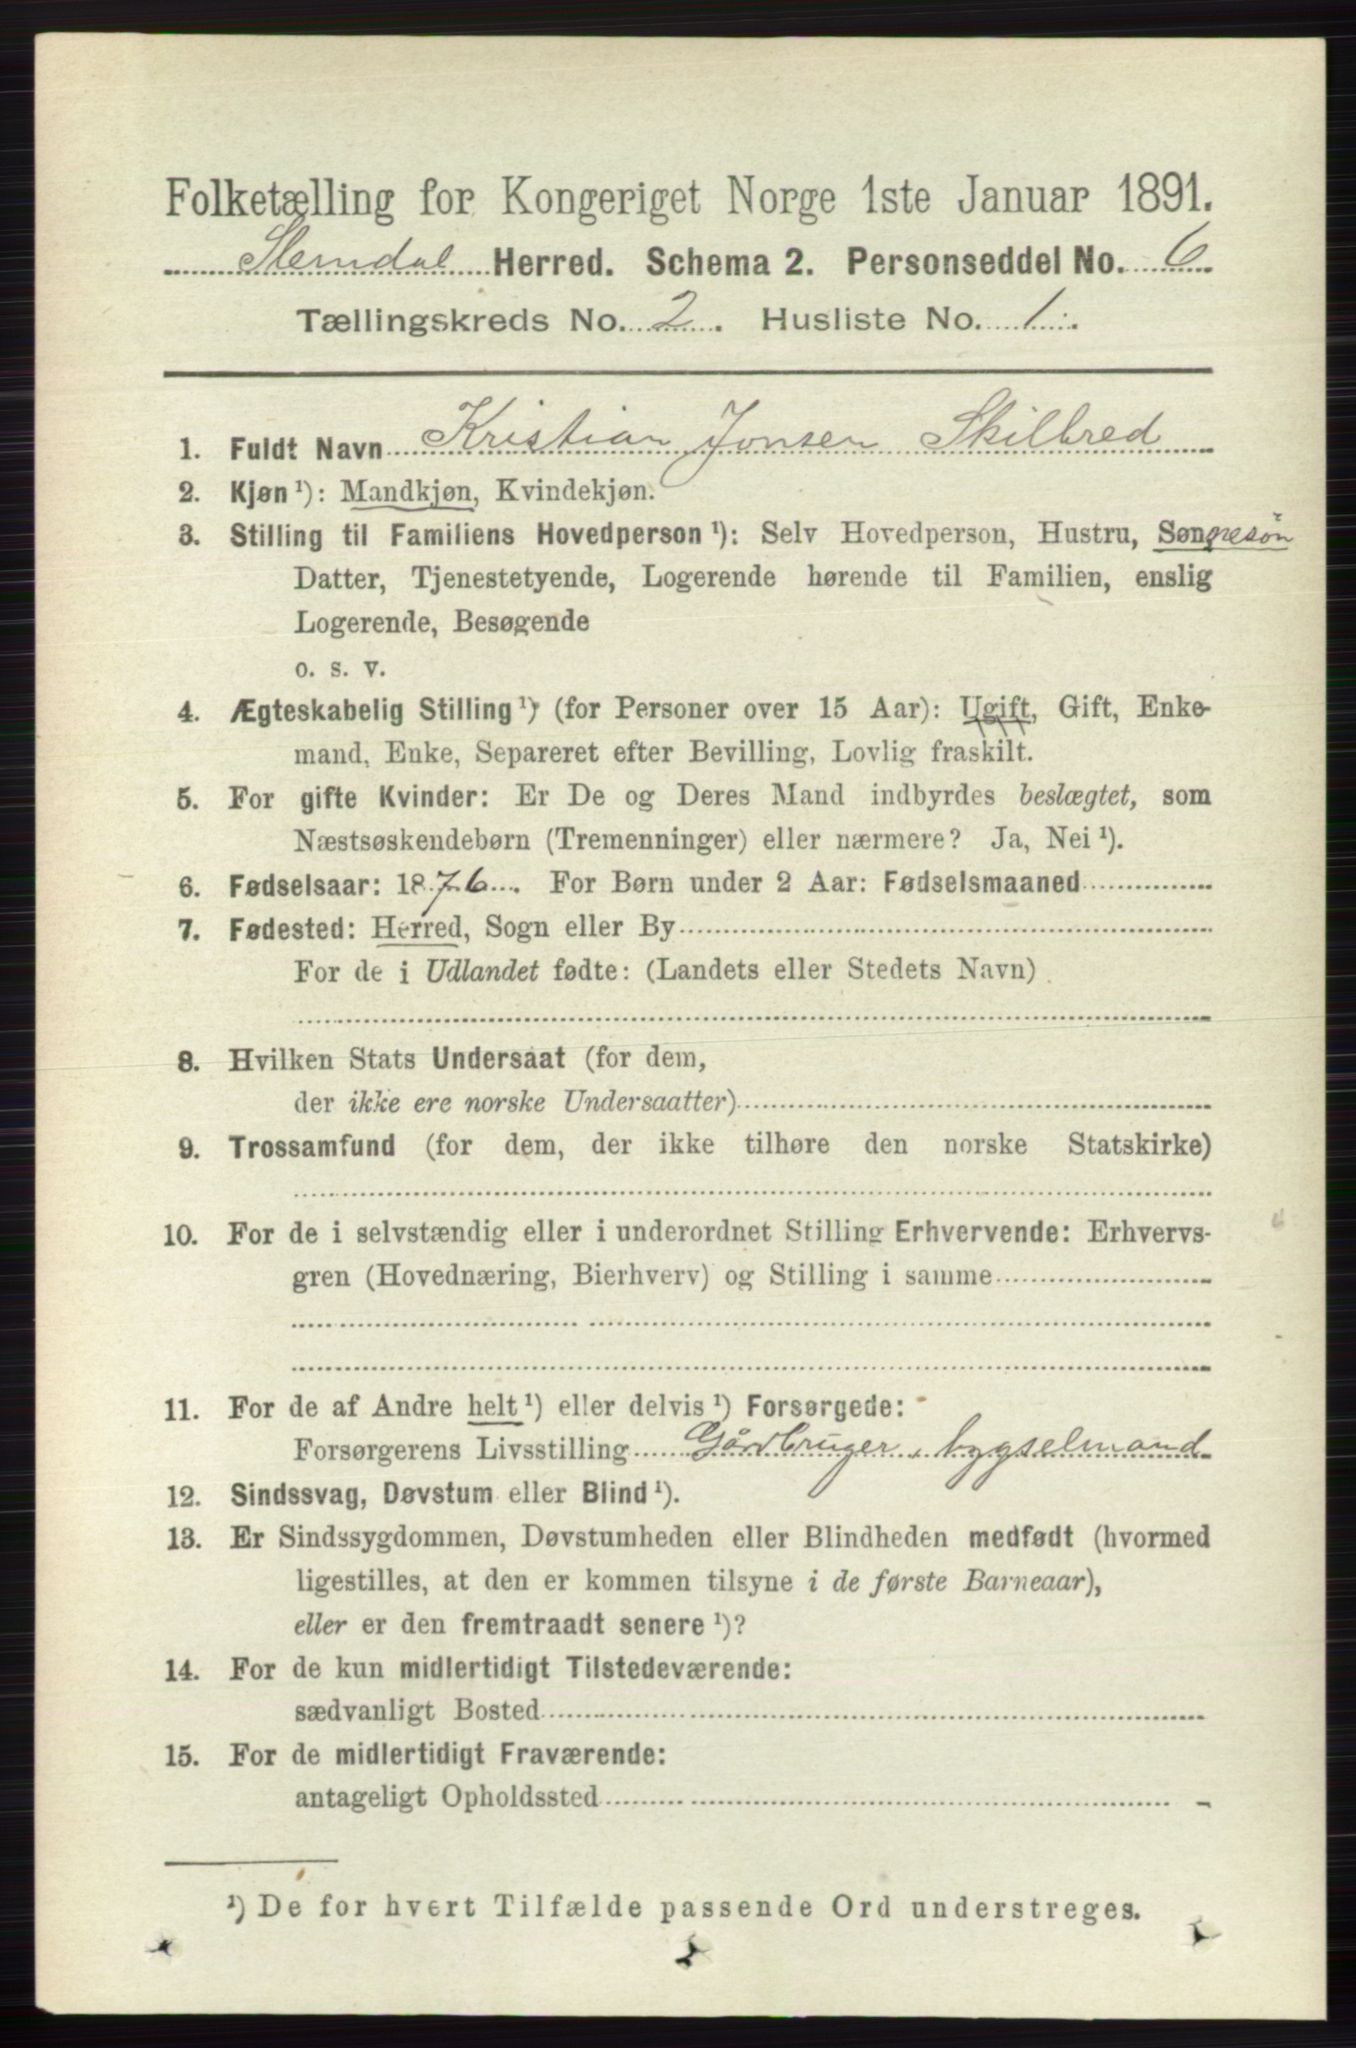 Folketælling for Kongeriget Norge 1ste Januar 1891.
Slemdal Herred. Schema 2. Personseddel No. 6
Tællingskreds No. 2. Husliste No. 1.
1. Fuldt Navn Kristian Jonsen Skilbred
2. Kjøn ¹): Mandkjøn, Kvindekjøn.
3. Stilling til Familiens Hovedperson ¹): Selv Hovedperson, Hustru, Sønnesøn
Datter, Tjenestetyende, Logerende hørende til Familien, enslig
Logerende, Besøgende
o. s. v.
4. Ægteskabelig Stilling ¹) (for Personer over 15 Aar): Ugift, Gift, Enke-
mand, Enke, Separeret efter Bevilling, Lovlig fraskilt.
5. For gifte Kvinder: Er De og Deres Mand indbyrdes beslægtet, som
Næstsøskendebørn (Tremenninger) eller nærmere? Ja, Nei ¹).
6. Fødselsaar: 1876. For Børn under 2 Aar: Fødselsmaaned
7. Fødested: Herred, Sogn eller By
For de i Udlandet fødte: (Landets eller Stedets Navn)
8. Hvilken Stats Undersaat (for dem,
der ikke ere norske Undersaatter)
9. Trossamfund (for dem, der ikke tilhøre den norske Statskirke)
10. For de i selvstændig eller i underordnet Stilling Erhvervende: Erhvervs-
gren (Hovednæring, Bierhverv) og Stilling i samme
11. For de af Andre helt ¹) eller delvis ¹) Forsørgede:
Forsørgerens Livsstilling Gårdbruger, bygselmand
12. Sindssvag, Døvstum eller Blind ¹).
13. Er Sindssygdommen, Døvstumheden eller Blindheden medfødt (hvormed
ligestilles, at den er kommen tilsyne i de første Barneaar),
eller er den fremtraadt senere ¹)?
14. For de kun midlertidigt Tilstedeværende:
sædvanligt Bosted
15. For de midlertidigt Fraværende:
antageligt Opholdssted
¹) De for hvert Tilfælde passende Ord understreges.